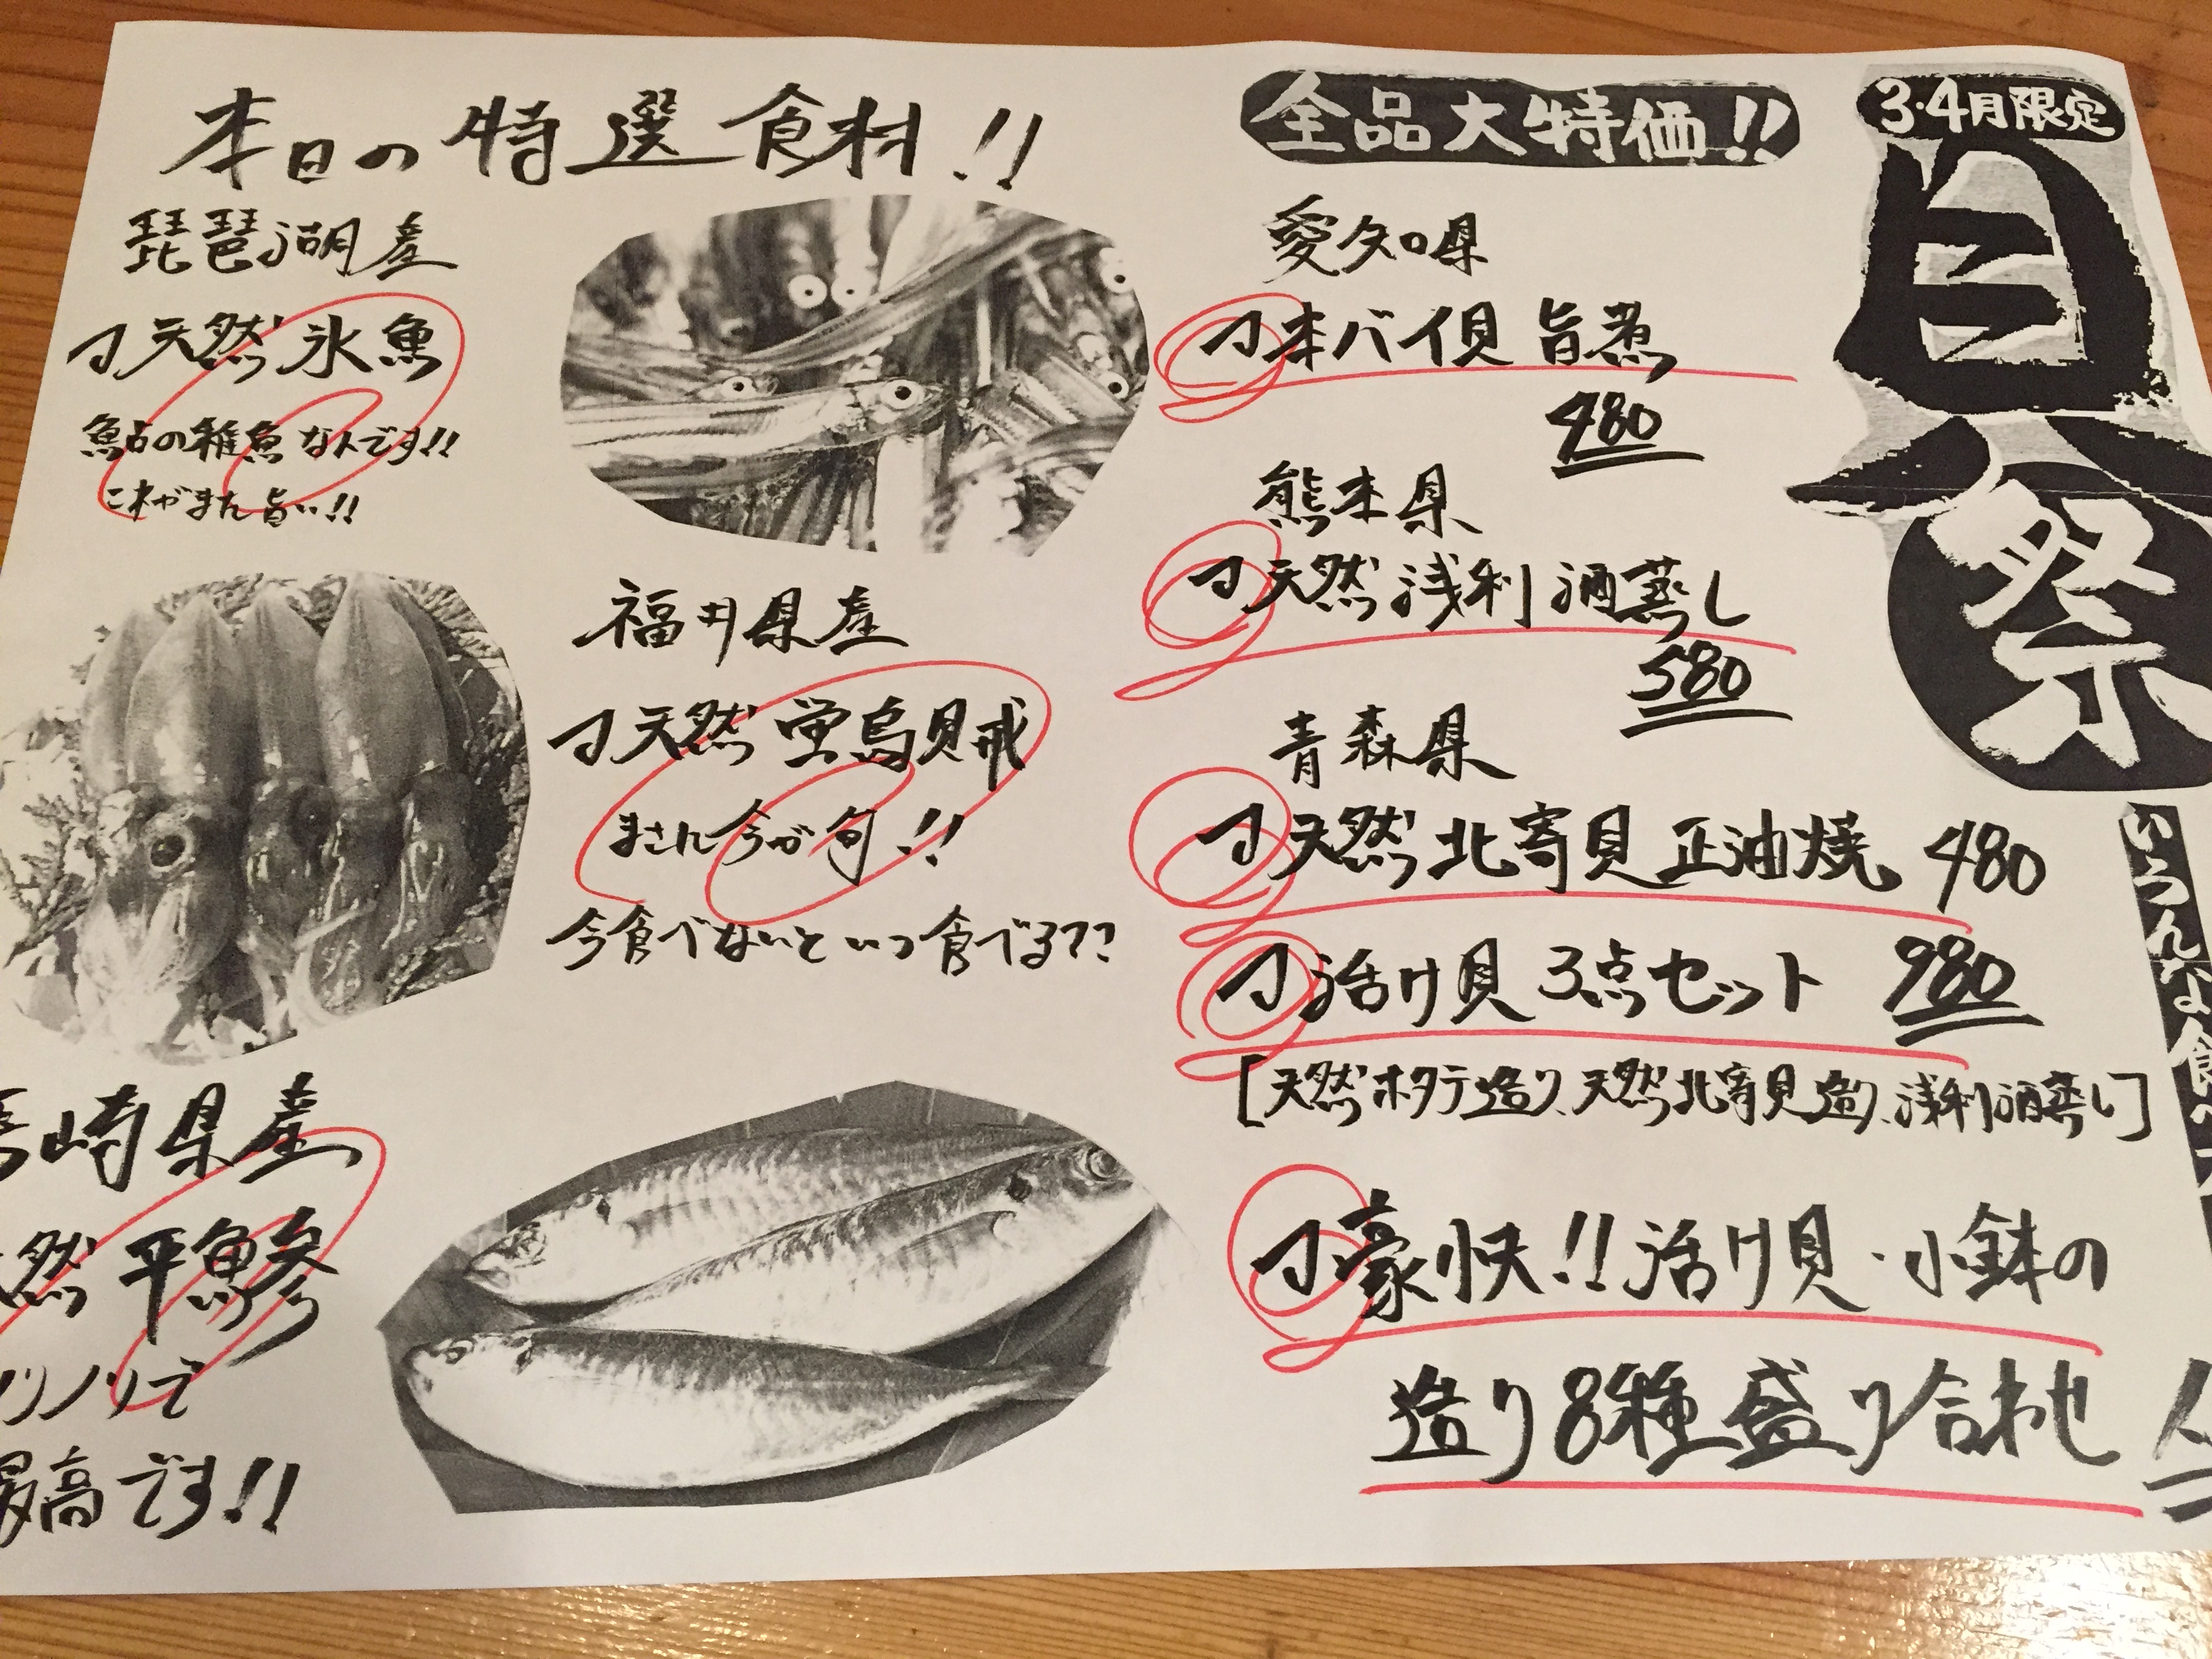 本日の特選食材!!
琵琶湖産
天然氷魚
鮎の稚魚なんです!!
これがまた旨い!!
福井県産
天然蛍烏賊
まさに今が旬!!
今食べないといつ食べる??
崎県産
然平鯵
ノリノリで
最高です!!
3・4月限定
貝祭
全品大特価!!
愛知県
本バイ貝旨煮
480
熊本県
天然浅利酒蒸し
580
青森県
天然北寄貝正油焼 480
活け貝3点セット 980
[天然ホタテ造り、天然北寄貝造り、浅利酒蒸し]
豪快!!活け貝・小鉢の
造り8種盛り合わせ